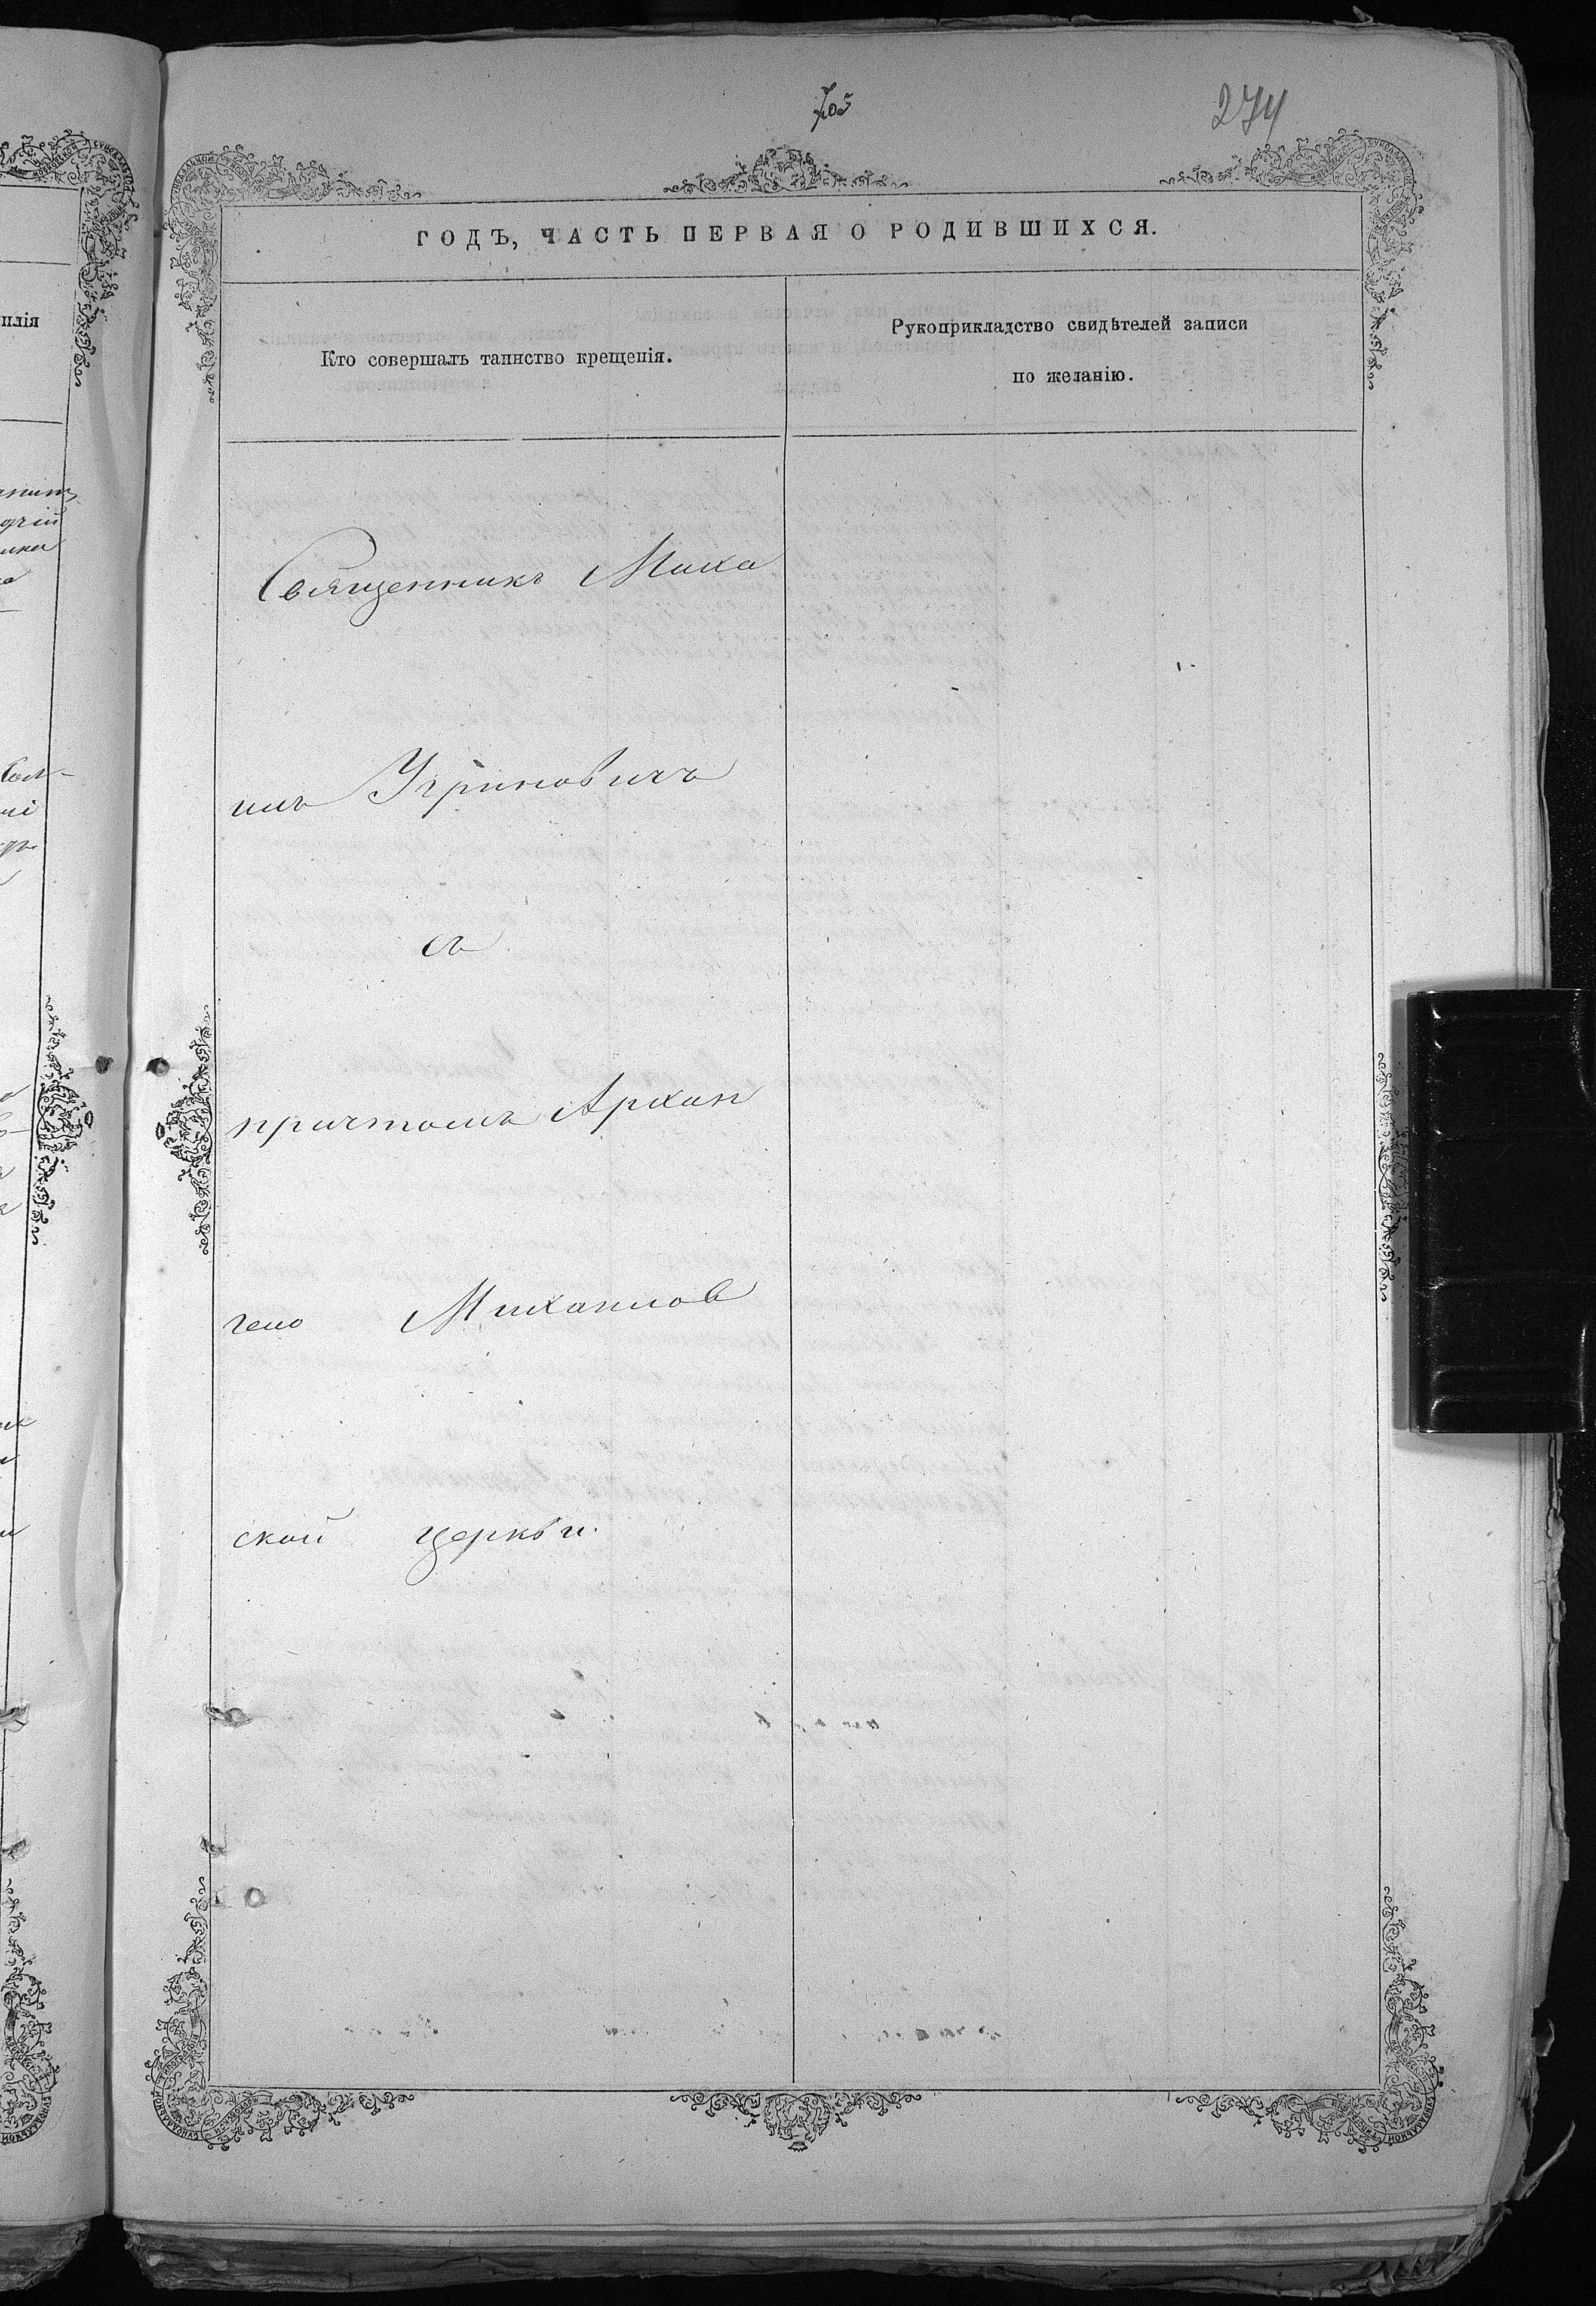 705
274
ГОДЪ, ЧАСТЬ ПЕРВАЯ О РОДИВШИХСЯ.
Кто совершалъ таинство крещенія.
Рукоприкладство свидѣтелей записи
по желанію.
Священникъ Миха
илъ Угриновичъ
съ
причтомъ Архан
гело Михаилов
ской церкви.